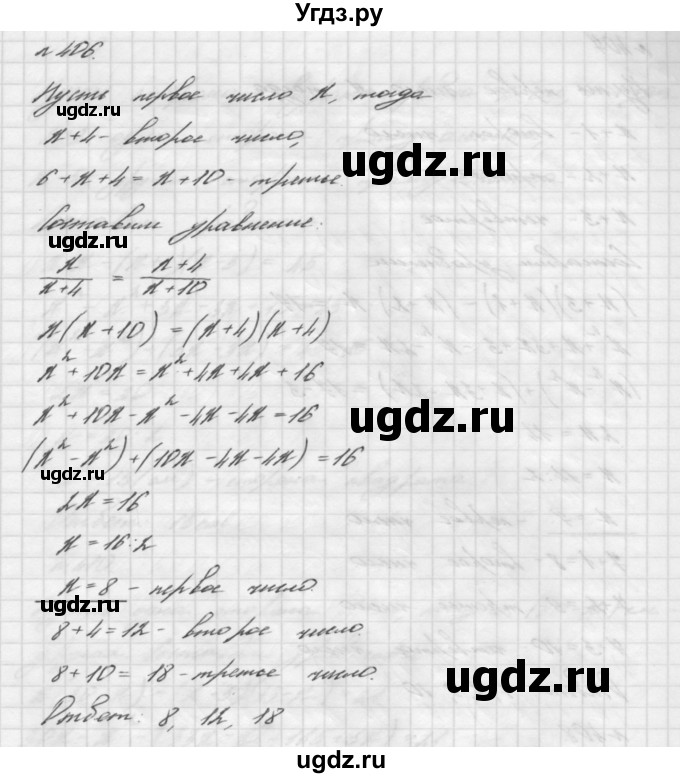 Угдз.ру
№ 406.
Пусть первое число x, тогда
ugdz.ru
x+4 - второе число,
ugdz.ru
6+x+4=x+10 - третье.
Составим уравнение:
ugdz.ru
x/(x+4) = (x+4)/(x+10)
x(x+10)=(x+4)(x+4)
x²+10x=x²+4x+4x+16
x²+10x-x²-4x-4x=16
ugdz.ru
(x²-x²)+(10x-4x-4x)=16
ugdz.ru
2x=16
x=16:2
x=8 - первое число.
ugdz.ru
8+4=12 - второе число.
ugdz.ru
8+10=18 - третье число.
ugdz.ru
Ответ: 8, 12, 18
ugdz.ru